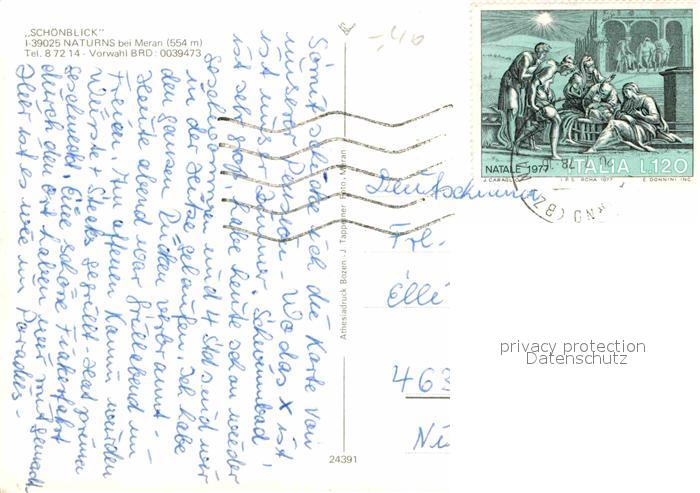 „SCHÖNBLICK"
I-39025 NATURNS bei Meran (554 m)
Tel. 8 72 14 - Vorwahl BRD: 0039473
-,40
Somit schicke ich die Karte von
unserer Pension - Wo das x ist
ist unser Zimmer. Schwimmbad
ist sehr groß habe heute schon wieder
geschwommen und 4 Std sind wir
in der Hitze gelaufen. Ich habe
den ganzen Rücken verbrannt -
Heute abend war Grillabend im
Freien. Am offenen Kamin wurden
Würste + Steaks gegrillt - hat prima
geschmeckt. Eine schöne Fiakerfahrt
durch den Ort haben wir mitgemacht
Hier ist es wie im Paradies -
Athesiadruck Bozen - J. Tappeiner, Foto, Meran
24391
NATALE 1977 ITALIA L.120
J. CARAGLIO I.P.S. ROMA 1977 E. DONNINI INC.
78
(BZ)
Frl.
Elli
463
privacy protection
Datenschutz